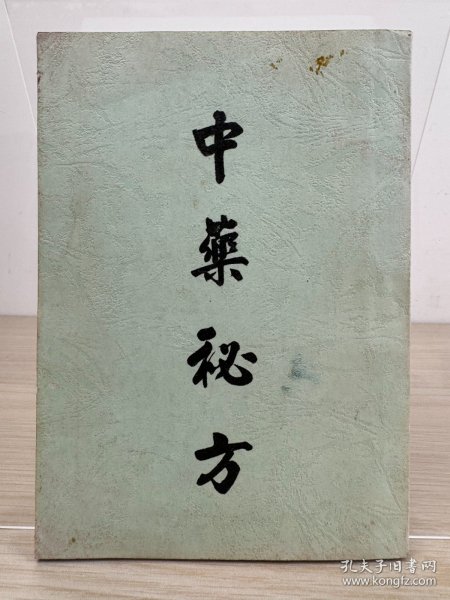 中藥祕方
孔夫子旧书网
www.kongfz.com